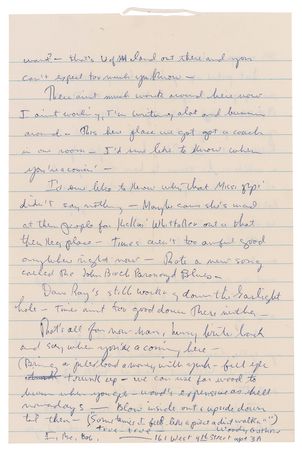 ward — that's U of M land out there and you
can't expect too much you know —
There aint much work around here now
I aint working, I'm writing alot and bumming
around — This here place we got got a couch
in our room — I'd sure like to know when
you're comin' —
I'd sure like to know why that Missippi
didn't say nothing — Maybe cause she's mad
at them people for
then Key place — Times aren't too awful good
anywhere right now — Wrote a new song
called The John Birch Paranoyd Blues —
Dave Ray's still working down the Gaslight
hole — Time aint too good down there neither —
That's all for now man, hurry write back
and say when you're a coming here —
(Bring a paterload a money with yuh — fell eye
it up — we can use for wood to
burn when you get — wood's expensive as hell
nowadays — Blow inside out & upside down
til then — (Sometimes it feels like a piece a dirt walkin")
— Woody Guthrie
I, Me, Bob. 161 West 4th Street apt 3A